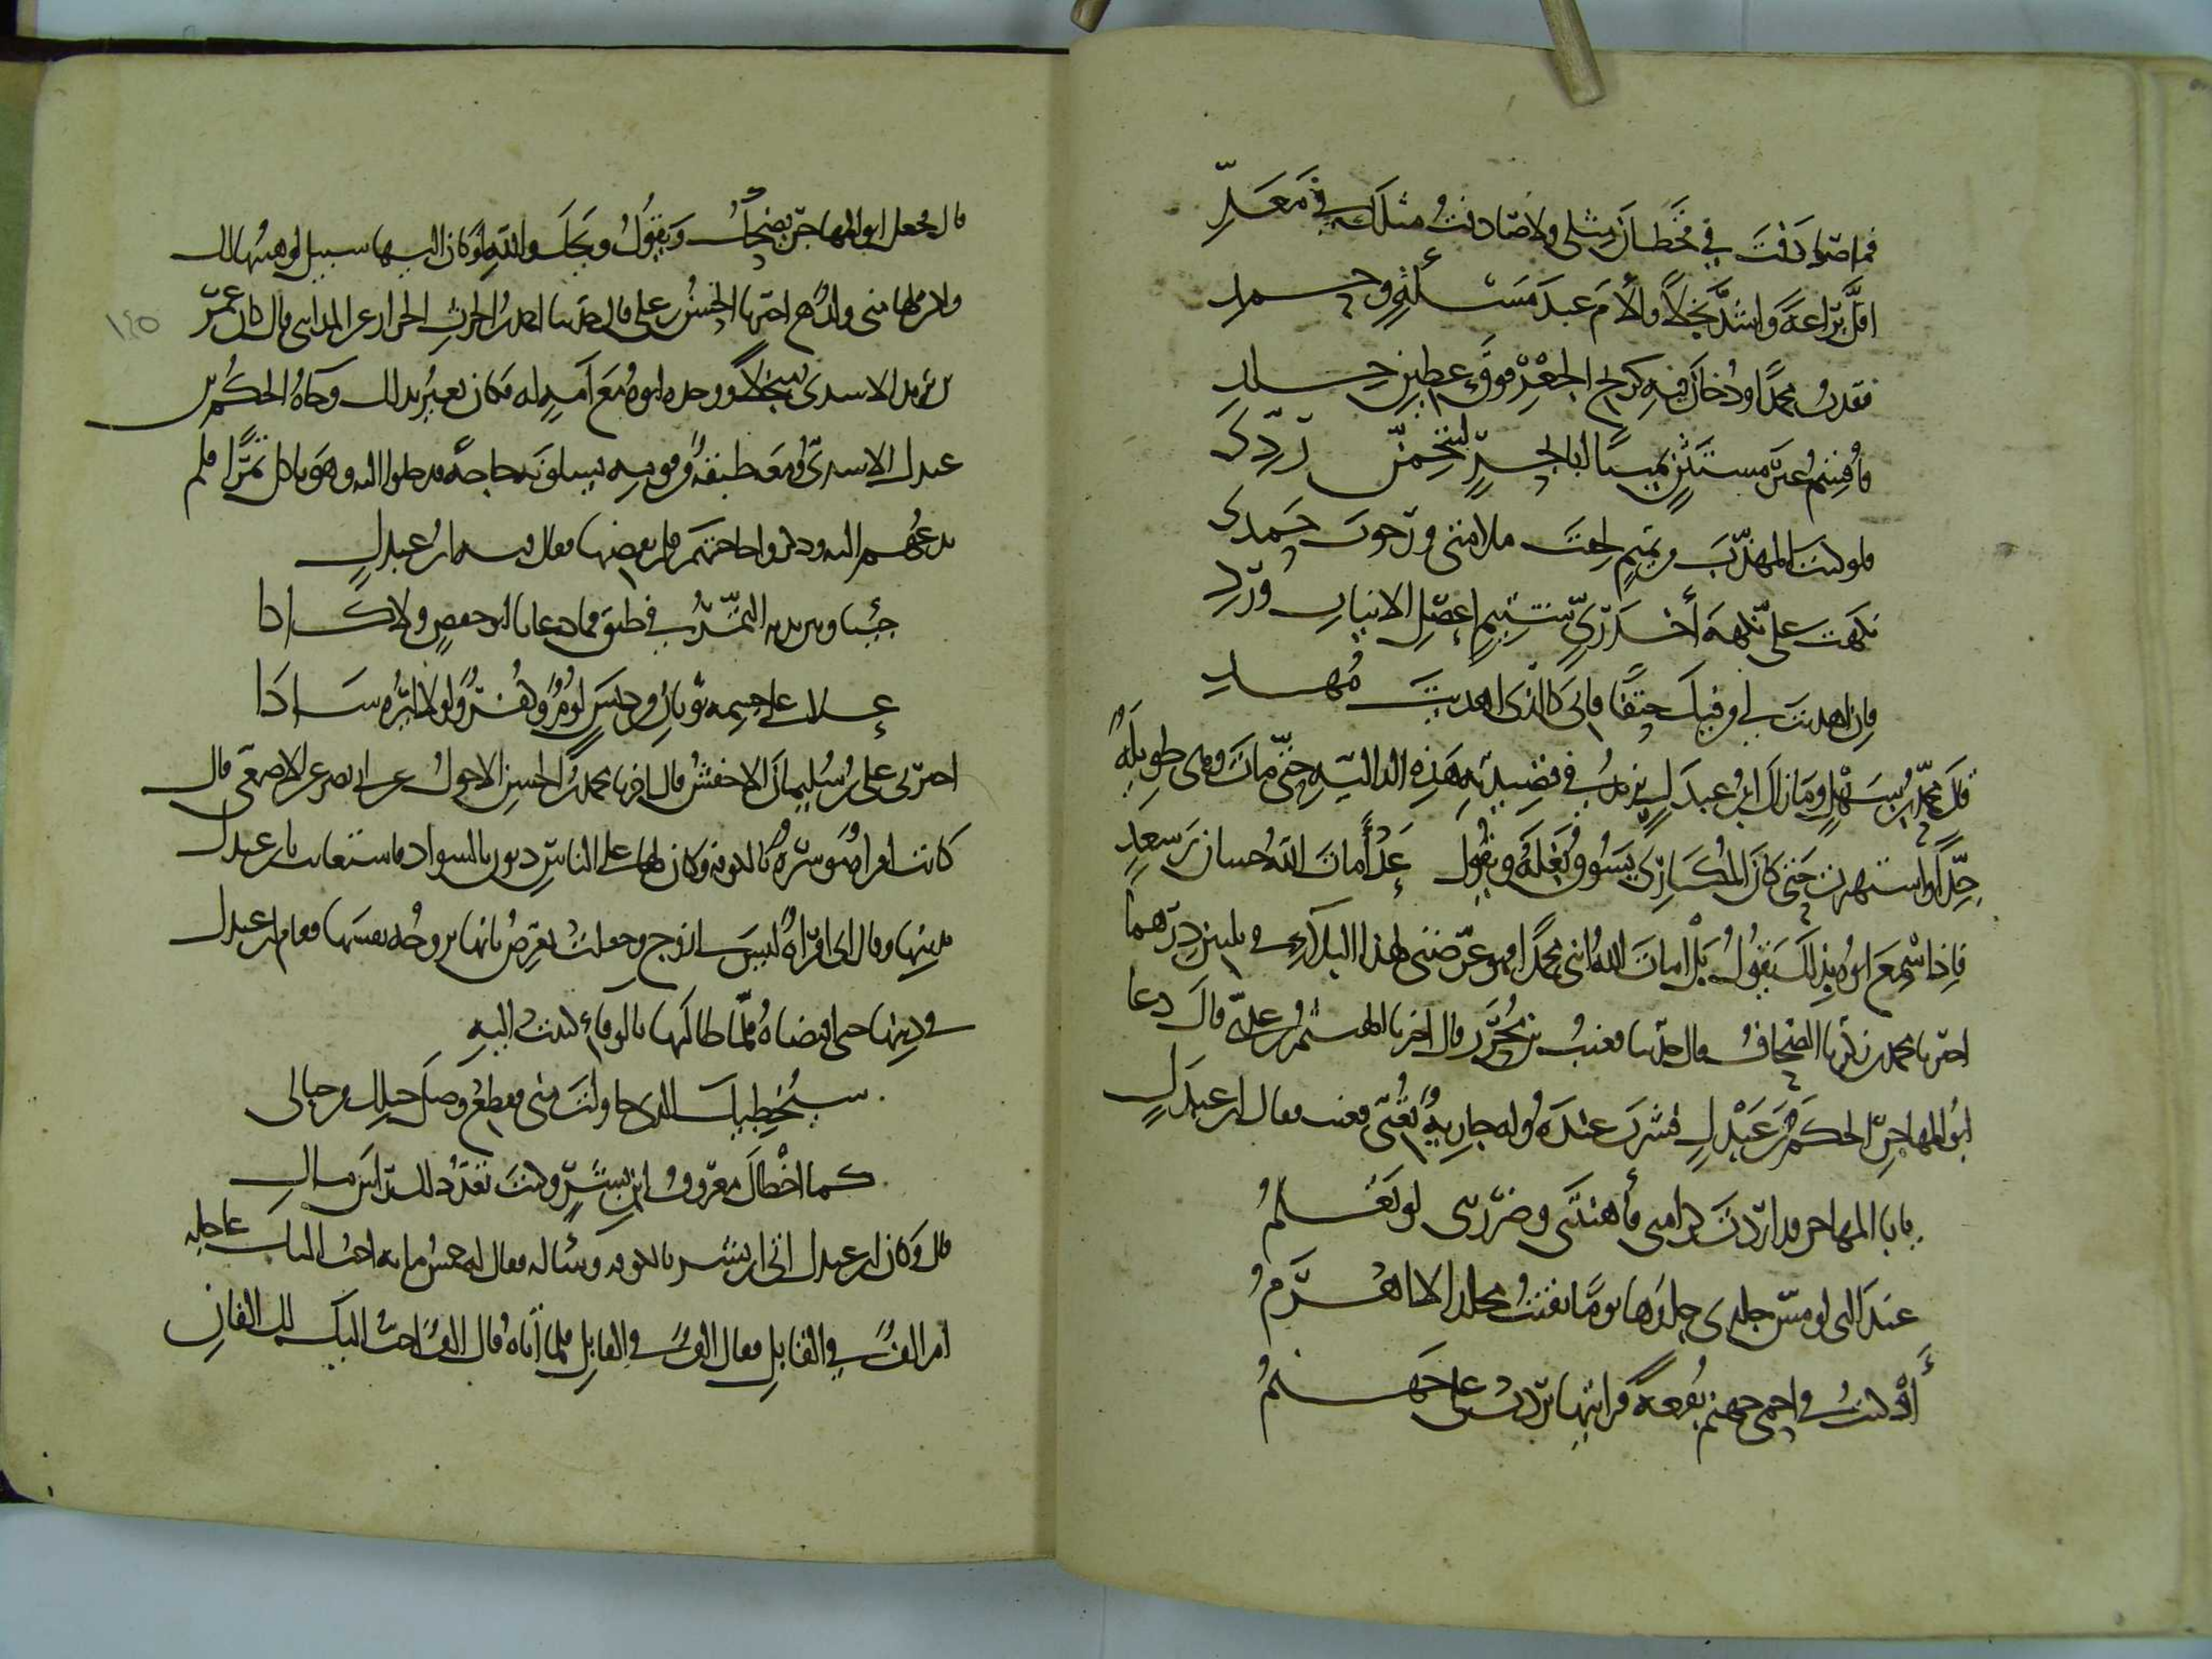 فما صادفت في قحطان مثلي ولا صادفت مثلك في معد
اقل براعة واشد بخلا والأم عبد مسئلة وحمد
فقدت محمدا ودخان فيه كريح الجعر فوق عطين جلد
فأقسم غير مستثن يمينا ابا بخر لتتخمن ردى
فلو كنت المهذب من تميم لخفت ملامتي ورجوت حمدي
نكهت علي نكهة أخدري شتيم اعصل الانياب ورد
فان اهديت لي من فيك حتفا فاني كالذي اهديت مهد
قال محمد بن سهل وما زال ابن عبدل يزيد في قصيدته هذه الدالية حتى مات وهي طويلة
جدا واشتهرت حتى كان المكاري يسوق بغله ويقول عد أمات الله حسان بن سعد
فاذا سمع ابوه بذلك يقول بل امات الله ابني محمدا فهو عرضني لهذا البلاء في ثلثين درهما
اخبرنا محمد بن زكريا الصحاف قال حدثنا قعنب بن محرر قال اخبرنا الهيثم بن عدي قال دعا
ابو المهاجر الحكم بن عبدل ليشرب عنده وله جارية تغني فغنت فقال ابن عبدل
يابا المهاجر قد اردت كرامتي فأهنتني وضررتني لو تعلم
عند التي لو مس جلدي جلدها يوما بقيت مخلدا لا اهرم
أو كنت في احمى جهنم بقعة فرايتها بردت علي جهنم
قال فجعل ابو المهاجر يضحك ويقول ويحك والله لو كان اليها سبيل لوهبتها لك
ولكن لها مني ولد اخبرنا الحسن بن علي قال حدثنا احمد بن الحرث الخراز عن المدايني قال كان عمر
بن يزيد الاسدي بخيلا ووجده ابوه مع امة له فكان يعير بذلك وجاه الحكم بن
عبدل الاسدي ومعه طبقة من قومه يسلونه حاجة فدخلوا اليه وهو ياكل تمرا فلم
يدعهم اليه وذكروا حاجتهم فلم يقضها فقال فيه ابن عبدل
جئنا وبين يديه التمر في طبق فما دعانا ابو حفص ولا كادا
علا على جسمه ثوبان من دنس لؤم وكفر ولولا ايره سادا
اخبرني علي بن سليمان الاخفش قال اخبرنا محمد بن الحسن الاحول عن ابي نصر عن الاصمعي قال
كانت امراة موسرة بالكوفة وكان لها على الناس ديون بالسواد فاستعانت بابن عبدل
في دينها وقالت اني امراة ليس لي زوج وجعلت تعرض بانها تزوجه نفسها فقام ابن عبدل
في دينها حتى اقتضاه فلما طالبها بالوفاء كتبت اليه
سيخطيك الذي حاولت مني فقطع وصل حبلك من حبالي
كما اخطاك معروف ابن بشر وكنت تعد ذلك راس مال
قال وكان ابن عبدل اتى ابن بشر بالكوفة وسأله فقال له خمس ماية احب اليك عاجلة
ام الف في القابل فقال الف في القابل فلما أتاه قال الف احب اليك ام الفان
١٤٥